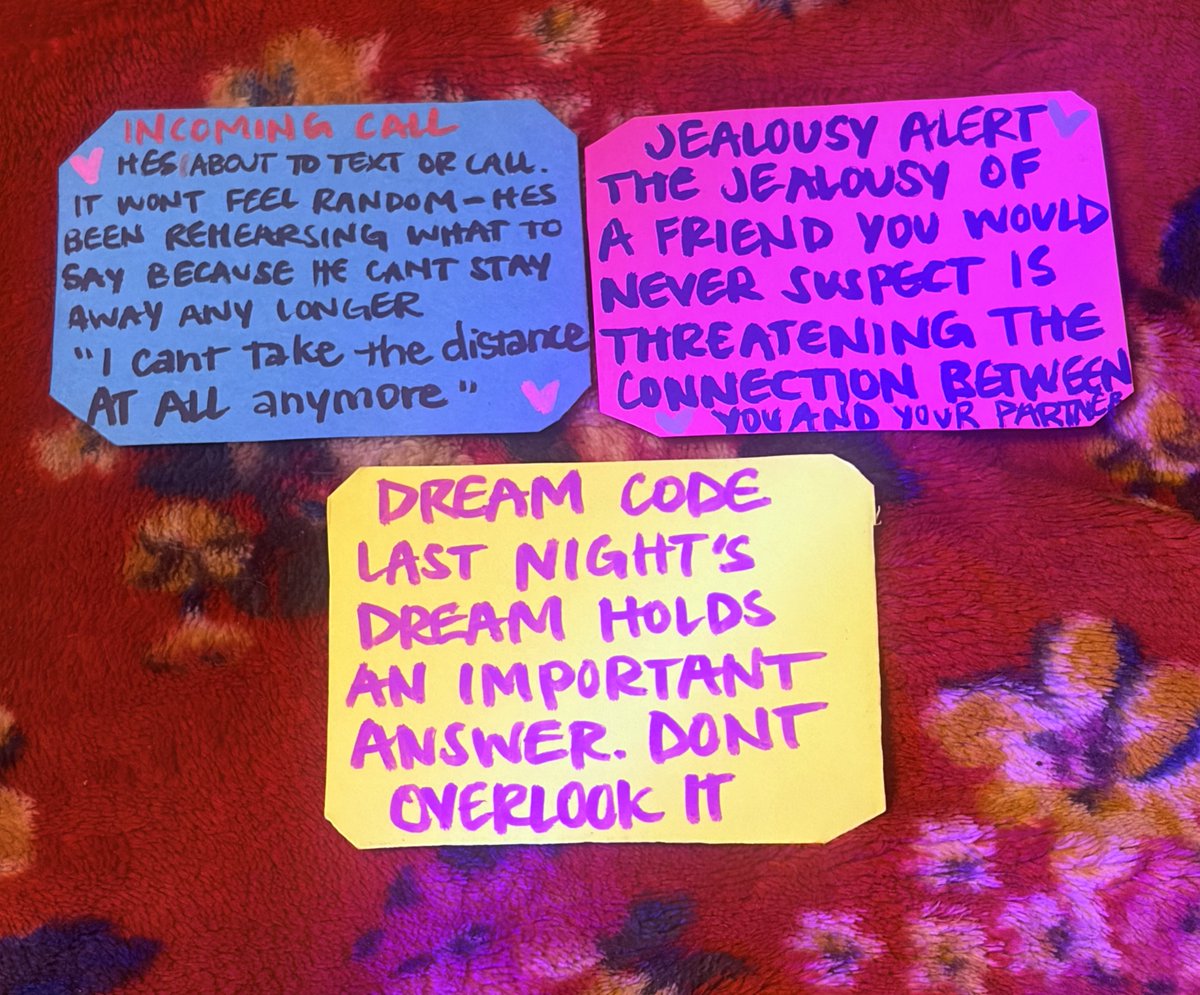 INCOMING CALL
HES ABOUT TO TEXT OR CALL.
IT WONT FEEL RANDOM - HES
BEEN REHEARSING WHAT TO
SAY BECAUSE HE CANT STAY
AWAY ANY LONGER
"I cant take the distance
AT ALL anymore"
JEALOUSY ALERT
THE JEALOUSY OF
A FRIEND YOU WOULD
NEVER SUSPECT IS
THREATENING THE
CONNECTION BETWEEN
YOU AND YOUR PARTNER
DREAM CODE
LAST NIGHT'S
DREAM HOLDS
AN IMPORTANT
ANSWER. DONT
OVERLOOK IT